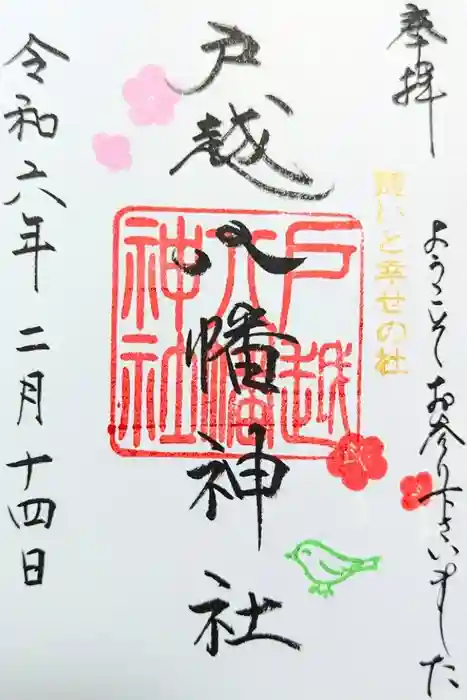 奉拝
ようこそお参り下さいました
願いと幸せの社
戸越八幡神社
戸越
八幡
神社
令和六年二月十四日